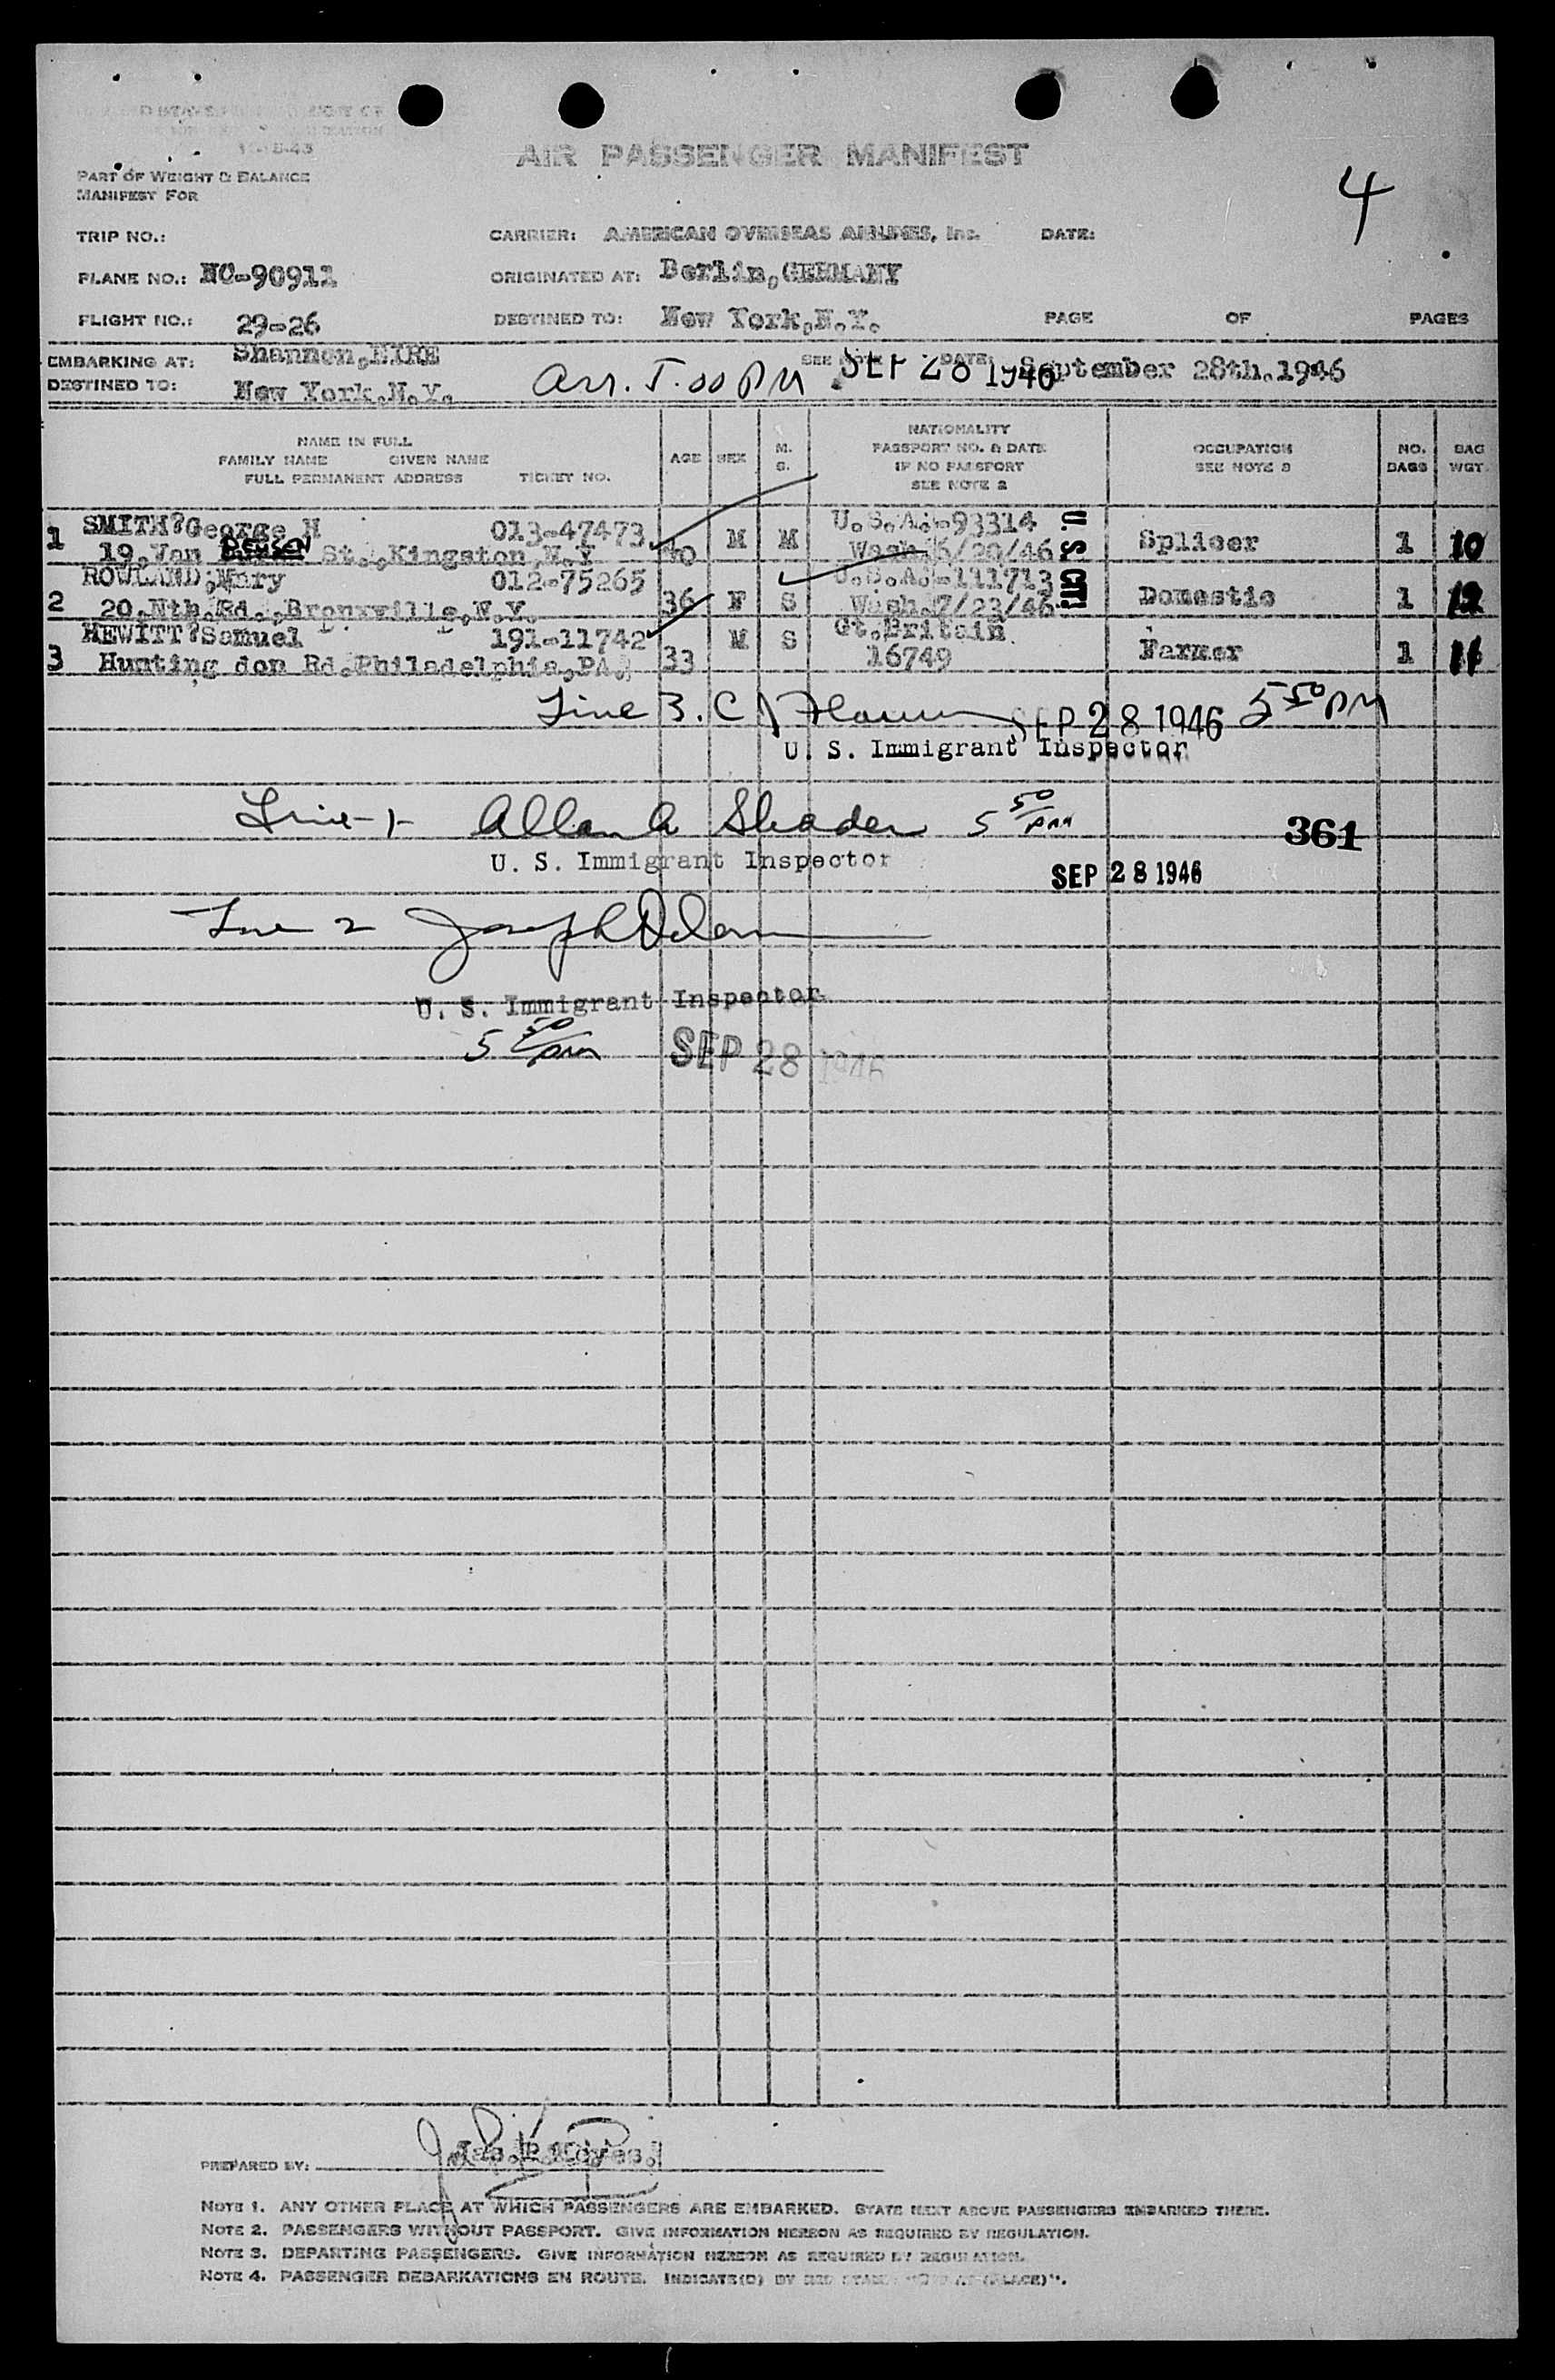 AIR PASSENGER MANIFEST
4
PART OF WEIGHT & BALANCE
MANIFEST FOR
TRIP NO.: CARRIER: AMERICAN OVERSEAS AIRLINES, Inc. DATE:
PLANE NO.: NC-90911 ORIGINATED AT: Berlin,GERMANY
FLIGHT NO.: 29-26 DESTINED TO: New York,N.Y. PAGE OF PAGES
EMBARKING AT: Shannon,EIRE SEE DATE: September 28th.1946
SEP 28 1946
DESTINED TO: New York.N.Y. Arr. 5.00 PM
NAME IN FULL
FAMILY NAME GIVEN NAME
FULL PERMANENT ADDRESS TICKET NO.
AGE SEX M. S.
NATIONALITY
PASSPORT NO. & DATE
IF NO PASSPORT
SEE NOTE 2
OCCUPATION
SEE NOTE 3
NO. BAGS
BAG WGT.
1 SMITH?George H 013-47473 40 M M U.S.A.-93314 Splicer 1 10
19,Van Deusen St.,Kingston,N.Y Wash. 6/20/46
U. S. CIT.
2 ROWLAND;Mary 012-75265 36 F S U.S.A.-111713 Domestic 1
20,Nth.Rd.,Bronxville,N.Y. Wash.7/23/46
3 HEWITT?Samuel 191-11742 33 M S Gt.Britain Farmer 1 11
Hunting don Rd.Philadelphia,PA. 16749
Line 3. SEP 28 1946 5 50 PM
U. S. Immigrant Inspector
Line 1 Allan A Shader 5 50 pm
361
U. S. Immigrant Inspector SEP 28 1946
Line 2 Joseph
U. S. Immigrant Inspector
5 50 pm SEP 28 1946
PREPARED BY:
NOTE 1. ANY OTHER PLACE AT WHICH PASSENGERS ARE EMBARKED. STATE NEXT ABOVE PASSENGERS EMBARKED THERE.
NOTE 2. PASSENGERS WITHOUT PASSPORT. GIVE INFORMATION HEREON AS REQUIRED BY REGULATION.
NOTE 3. DEPARTING PASSENGERS. GIVE INFORMATION HEREON AS REQUIRED BY REGULATION.
NOTE 4. PASSENGER DEBARKATIONS EN ROUTE. INDICATE(D) BY RED (PLACE)".